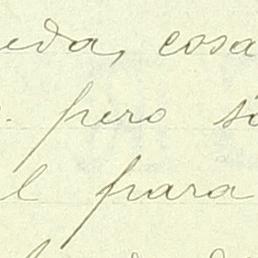 eda, cosa
. pero si
l para